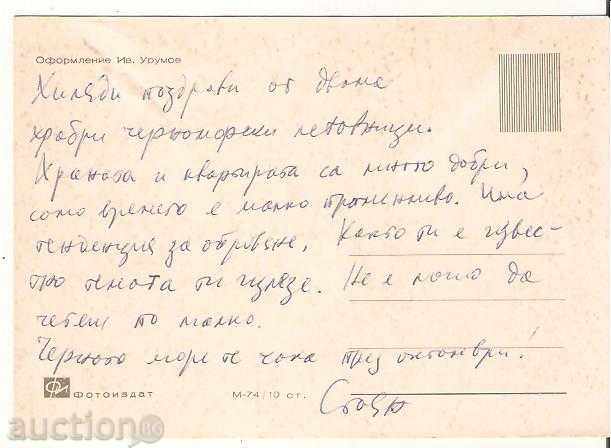 Оформление Ив. Урумов
Хиляди поздрави от двама
храбри черноморски летовници.
Храната и квартирата са много добри,
само времето е малко променливо. Има
тенденция за оправяне. Както ти е извес-
тно темата ти излезе. Не е лошо да
четеш по малко.
Черното море те чака през октомври!
Стоян
Фотоиздат
М-74/10 ст.
auction.bg